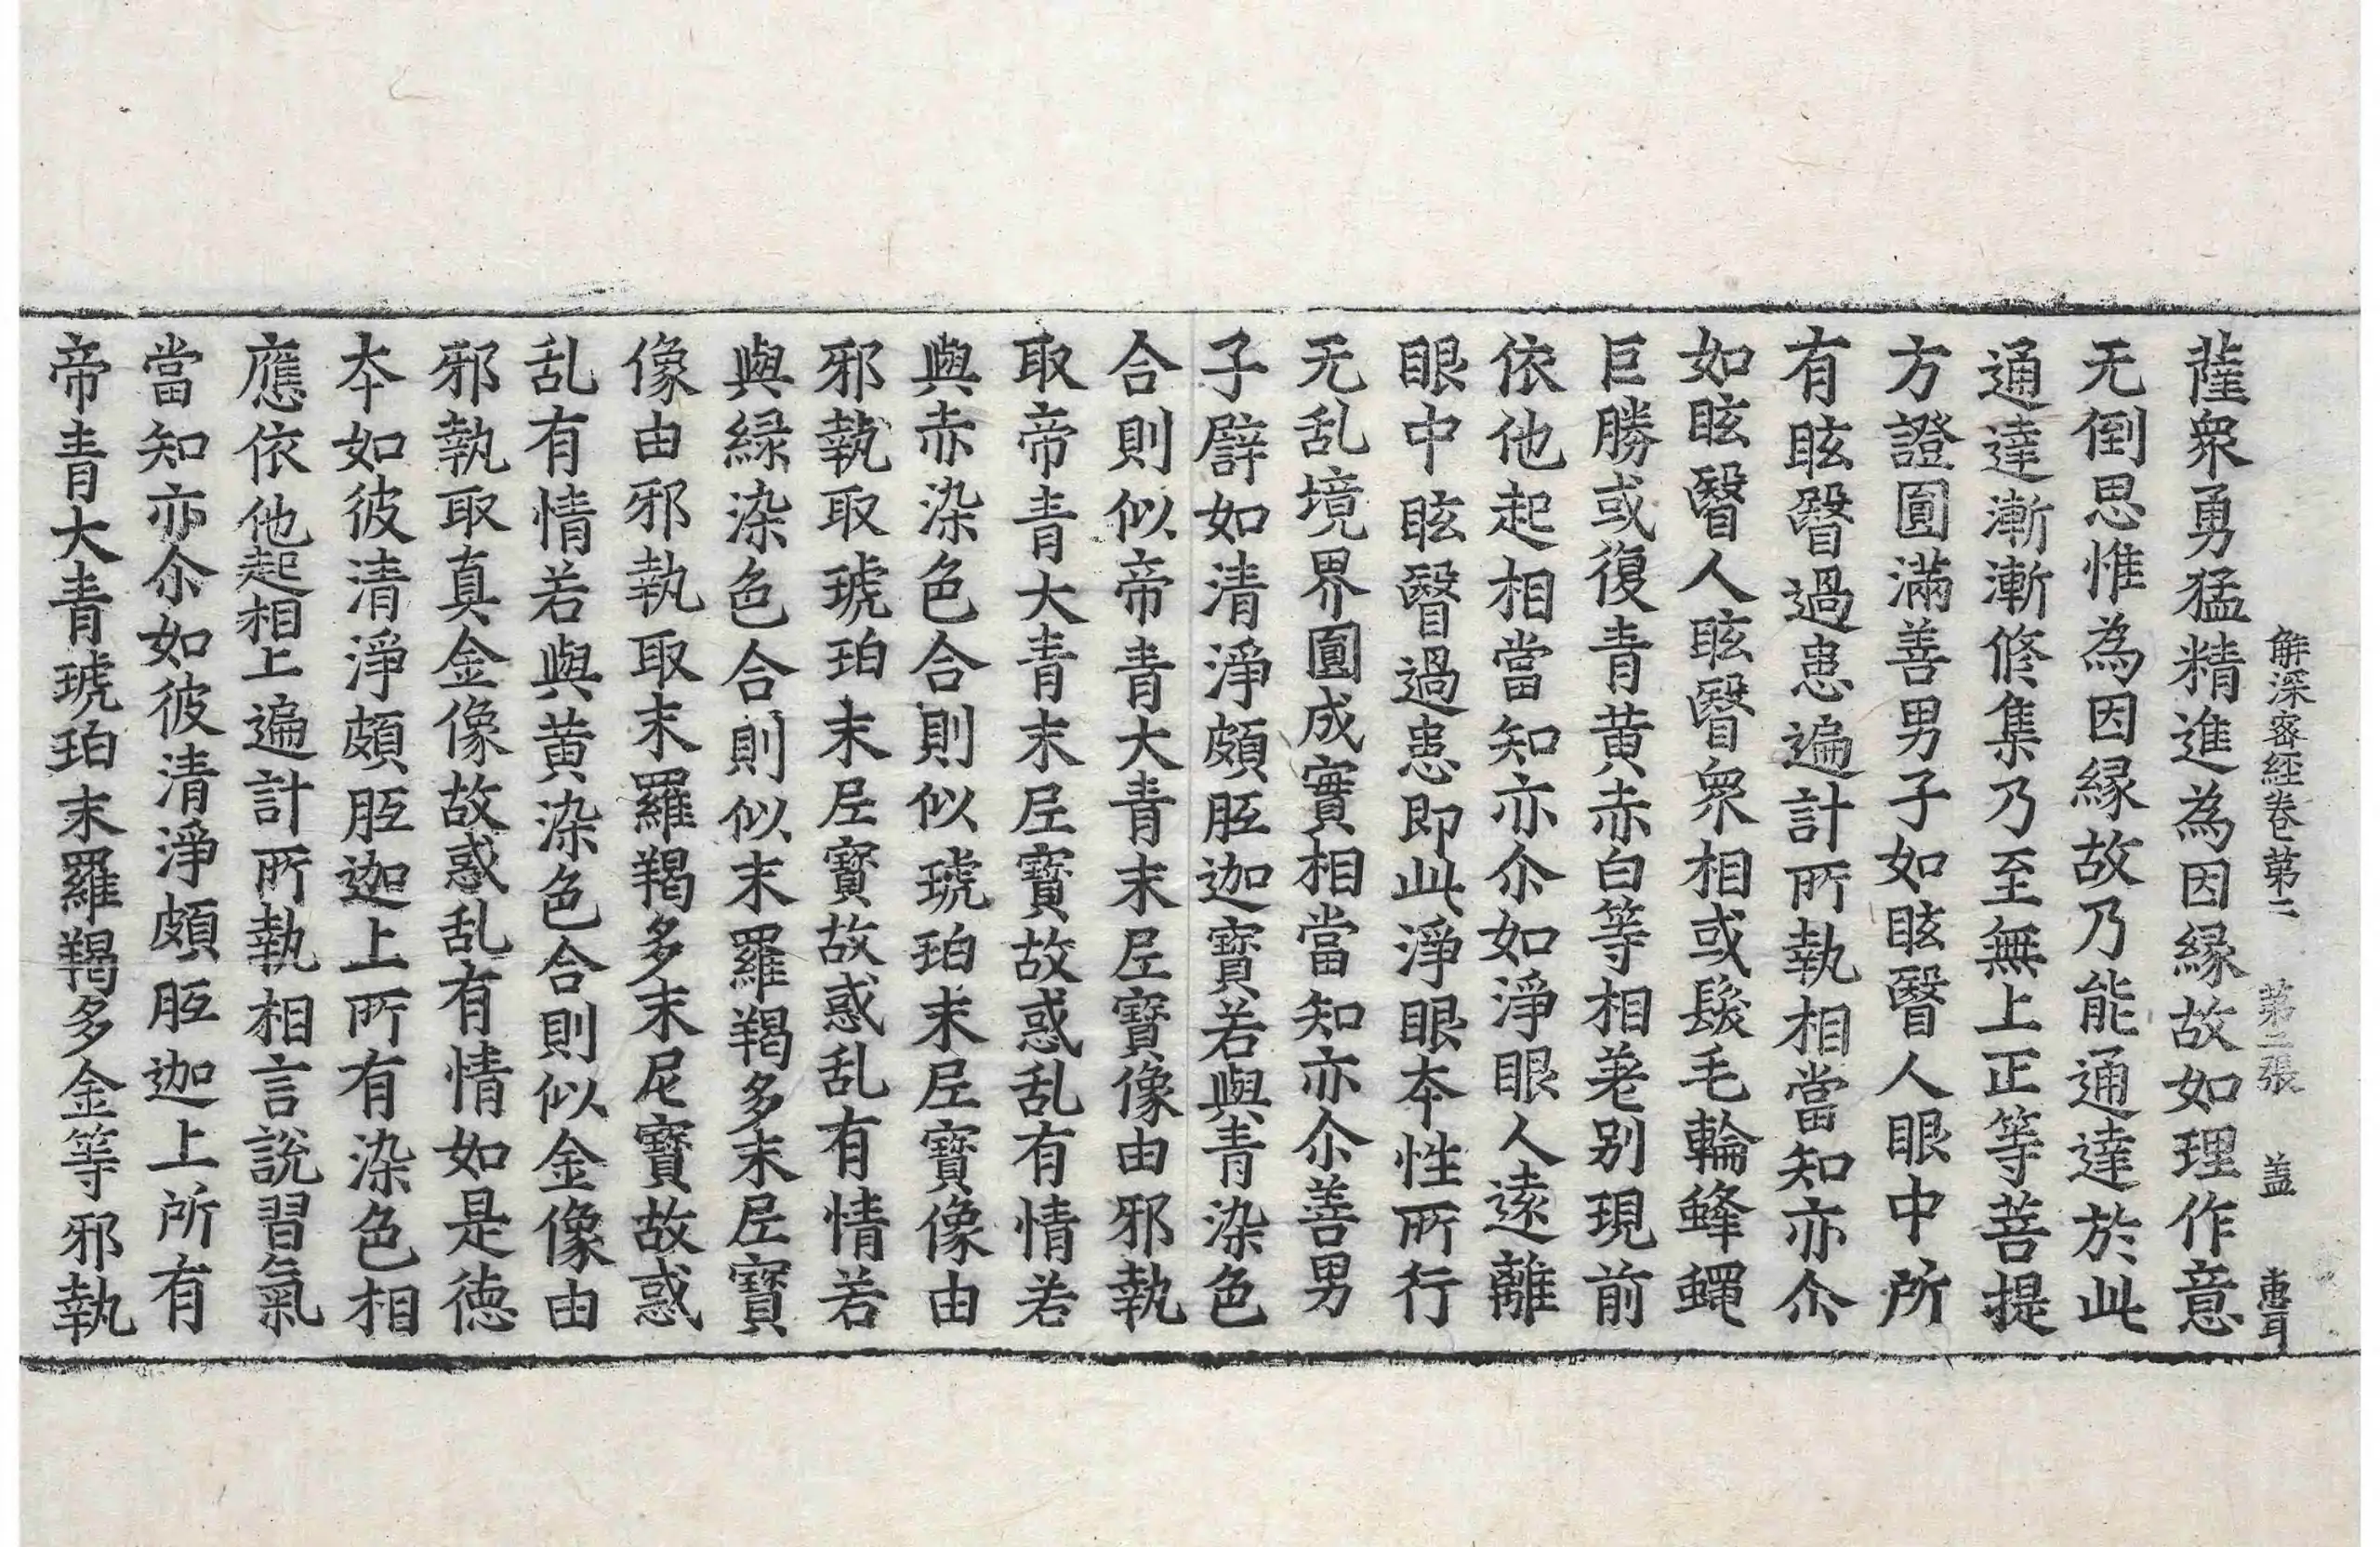 解深密経卷第二 第二張 盖 惠耳
薩衆勇猛精進為因緣故如理作意
无倒思惟為因緣故乃能通達於此
通達漸漸修集乃至無上正等菩提
方證圓滿善男子如眩瞖人眼中所
有眩瞖過患遍計所執相當知亦尒
如眩瞖人眩瞖衆相或髮毛輪蜂蠅
巨勝或復青黄赤白等相差别現前
依他起相當知亦尒如淨眼人遠離
眼中眩瞖過患即此淨眼本性所行
无乱境界圓成實相當知亦尒善男
子譬如清淨頗胝迦寶若與青染色
合則似帝青大青末尼寶像由邪執
取帝青大青末尼寶故惑乱有情若
與赤染色合則似琥珀末尼寶像由
邪執取琥珀末尼寶故惑乱有情若
與緑染色合則似末羅羯多末尼寶
像由邪執取末羅羯多末尼寶故惑
乱有情若與黄染色合則似金像由
邪執取真金像故惑乱有情如是德
本如彼清淨頗胝迦上所有染色相
應依他起相上遍計所執相言說習氣
當知亦尒如彼清淨頗胝迦上所有
帝青大青琥珀末羅羯多金等邪執